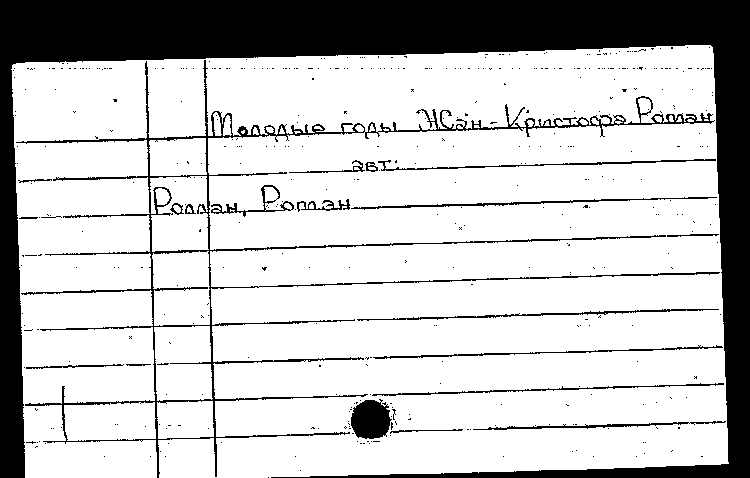 Молодые годы Жан-Кристофа. Роллан
авт:
Роллан, Ромэн